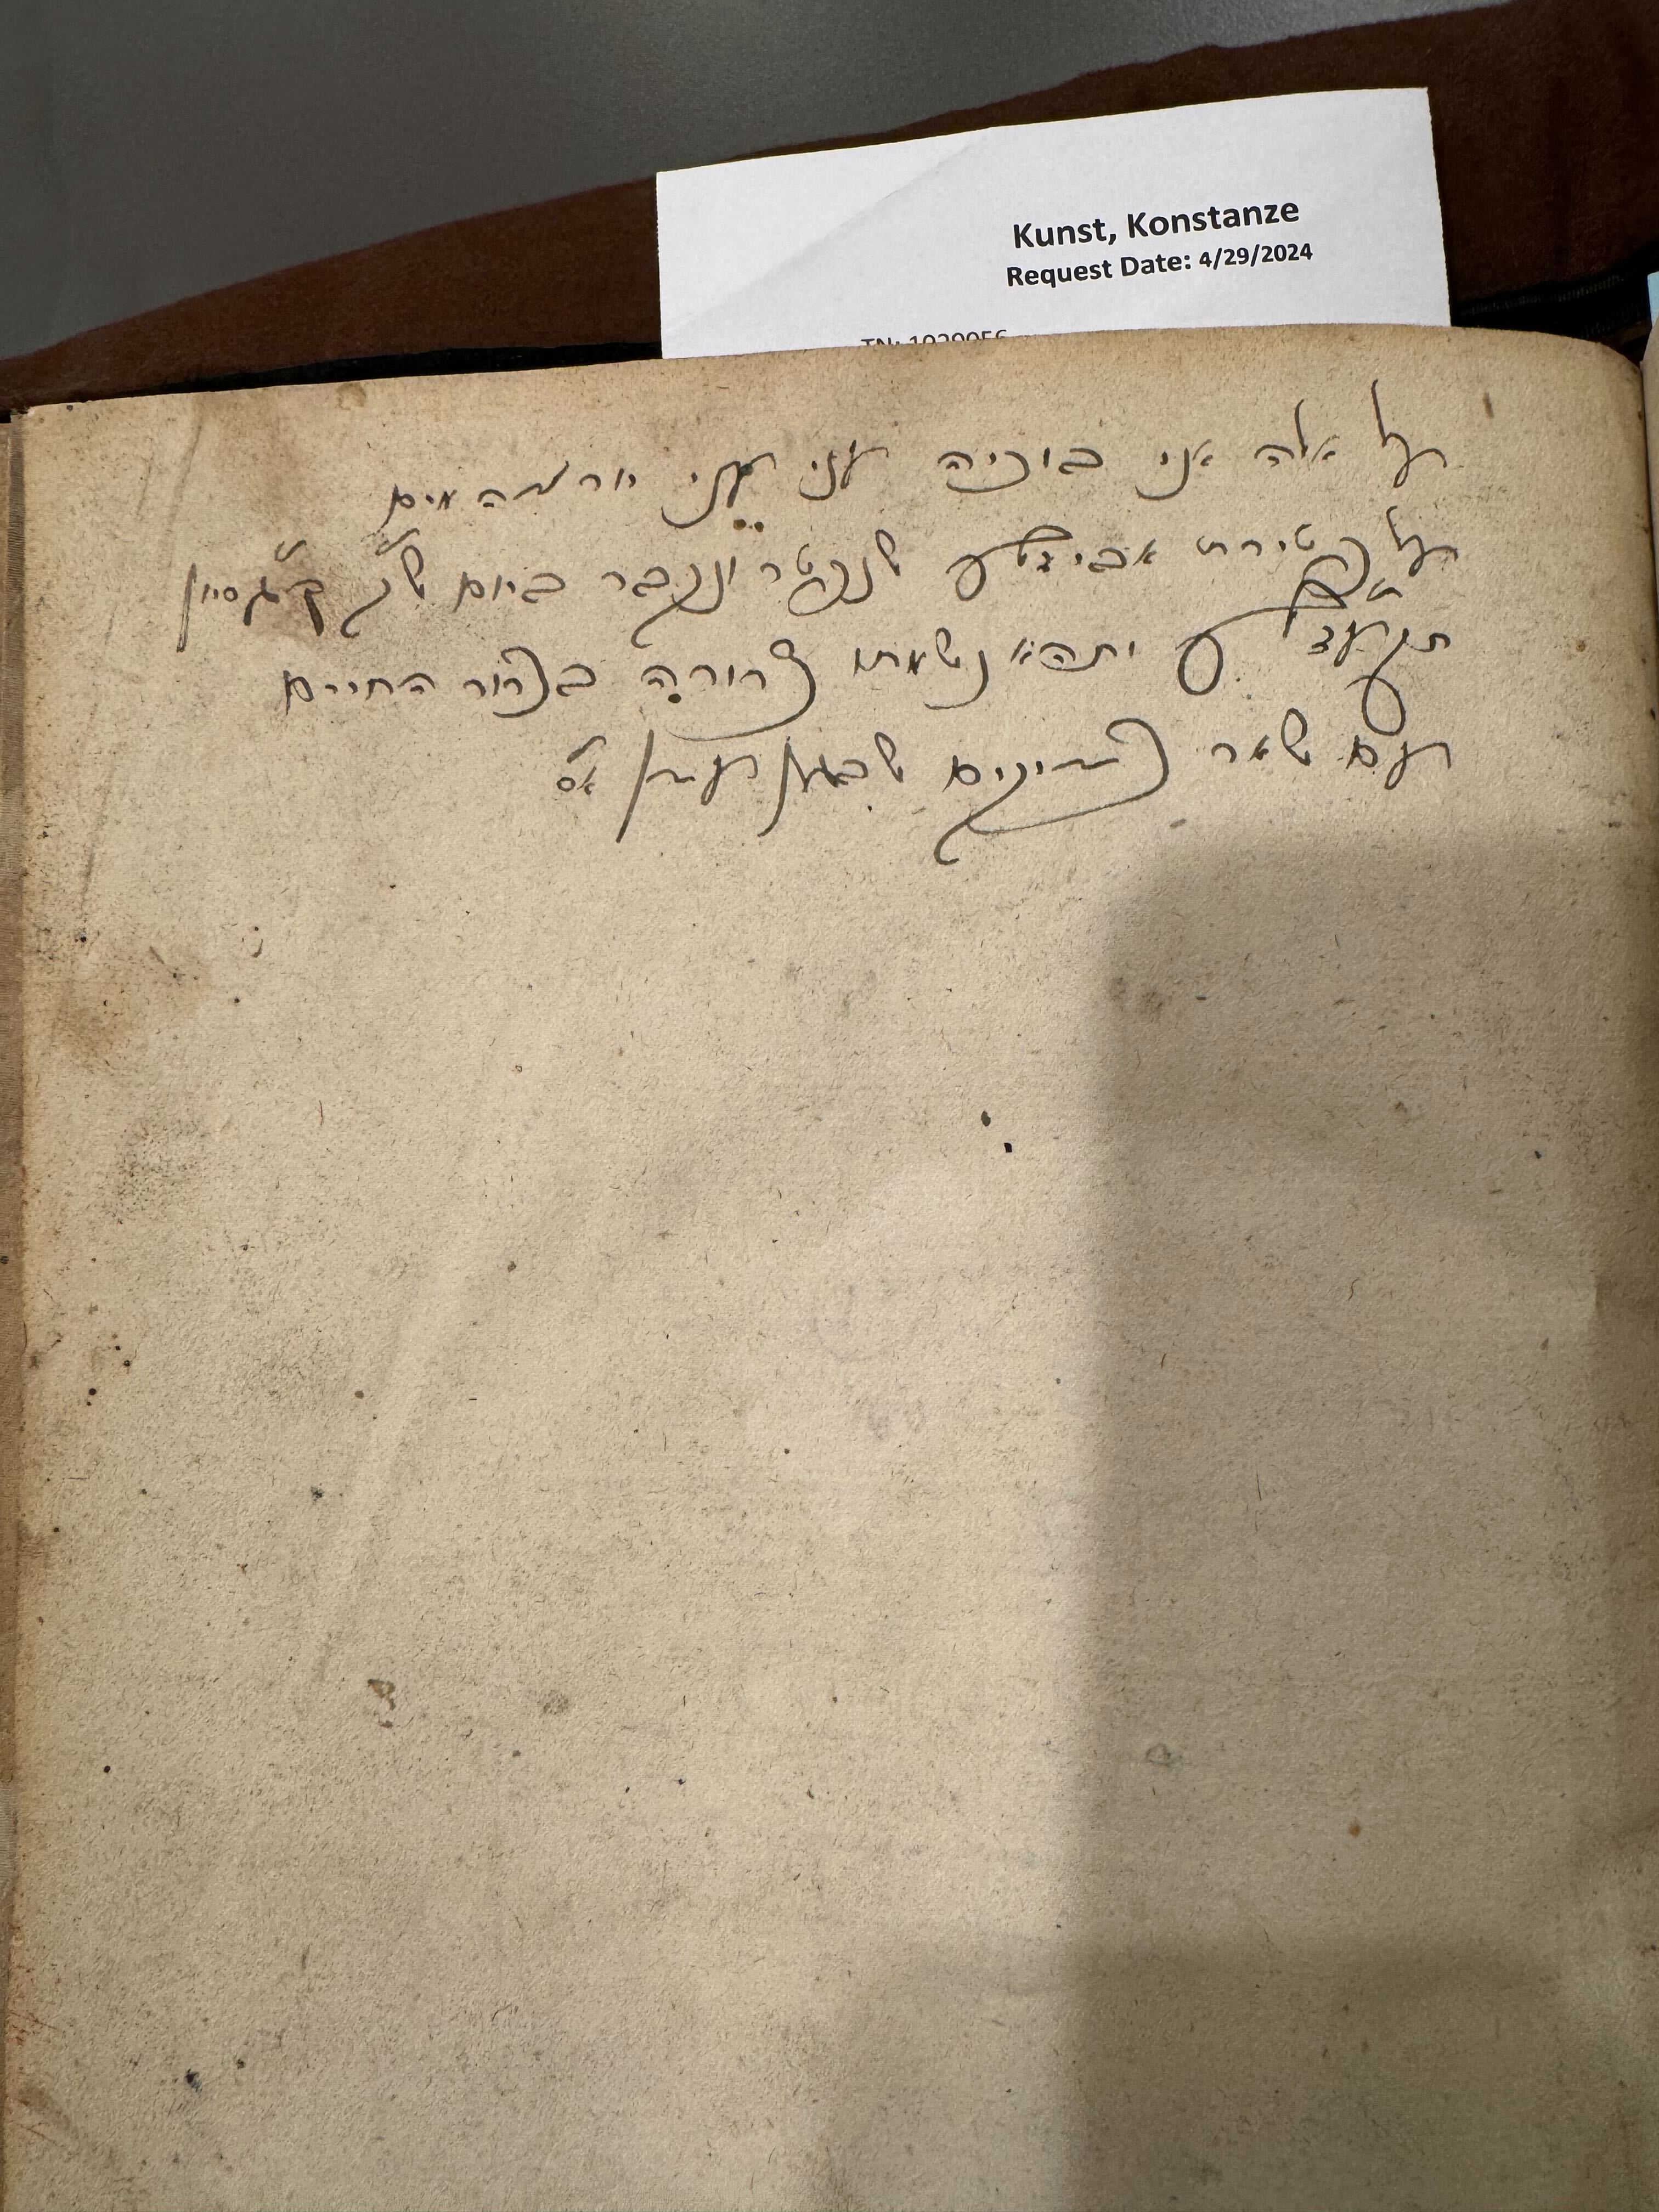 Kunst, Konstanze
Request Date: 4/29/2024
על אלה אני בוכיה עני עני יורדה מים
על פטירת אבי זצ"ל שנפטר ונקבר ביום ש"ק סיון
ותהא נשמתו צרורה בצרור החיים
עם שאר צדיקים שבגן עדן א"ס